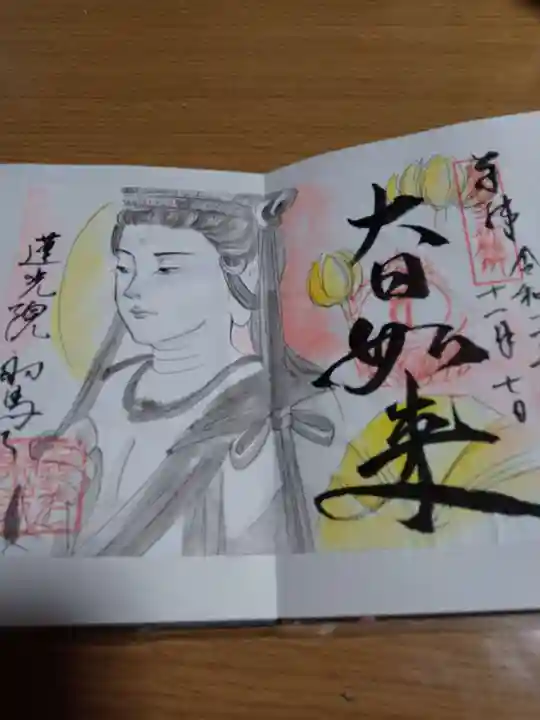 奉拝
令和二年
十一月七日
大日如来
蓮光院